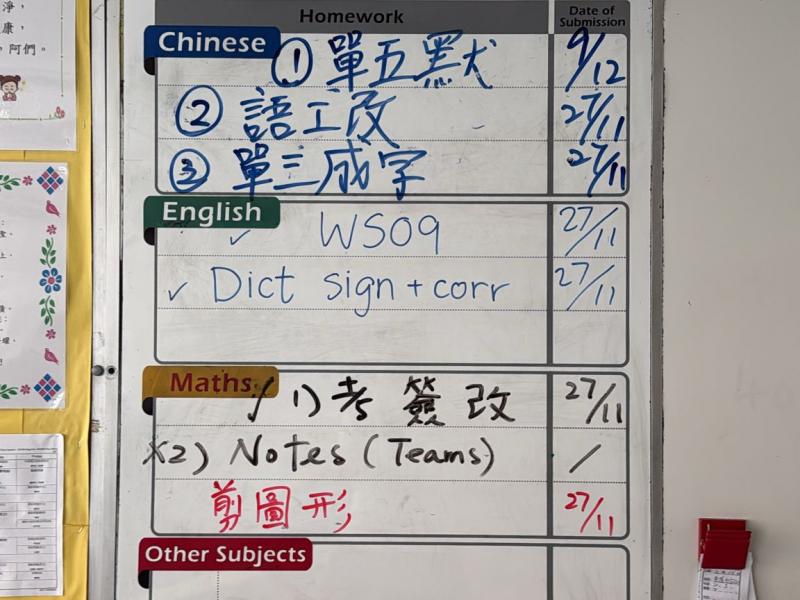 淨，
康，
，阿們。
Homework
Date of Submission
Chinese
① 單五默 9/12
② 語工改 27/11
③ 單三成字 27/11
English
✓ WS09 27/11
✓ Dict sign + corr 27/11
Maths
1) 考簽改 27/11
2) Notes (Teams) /
剪圖形 27/11
Other Subjects